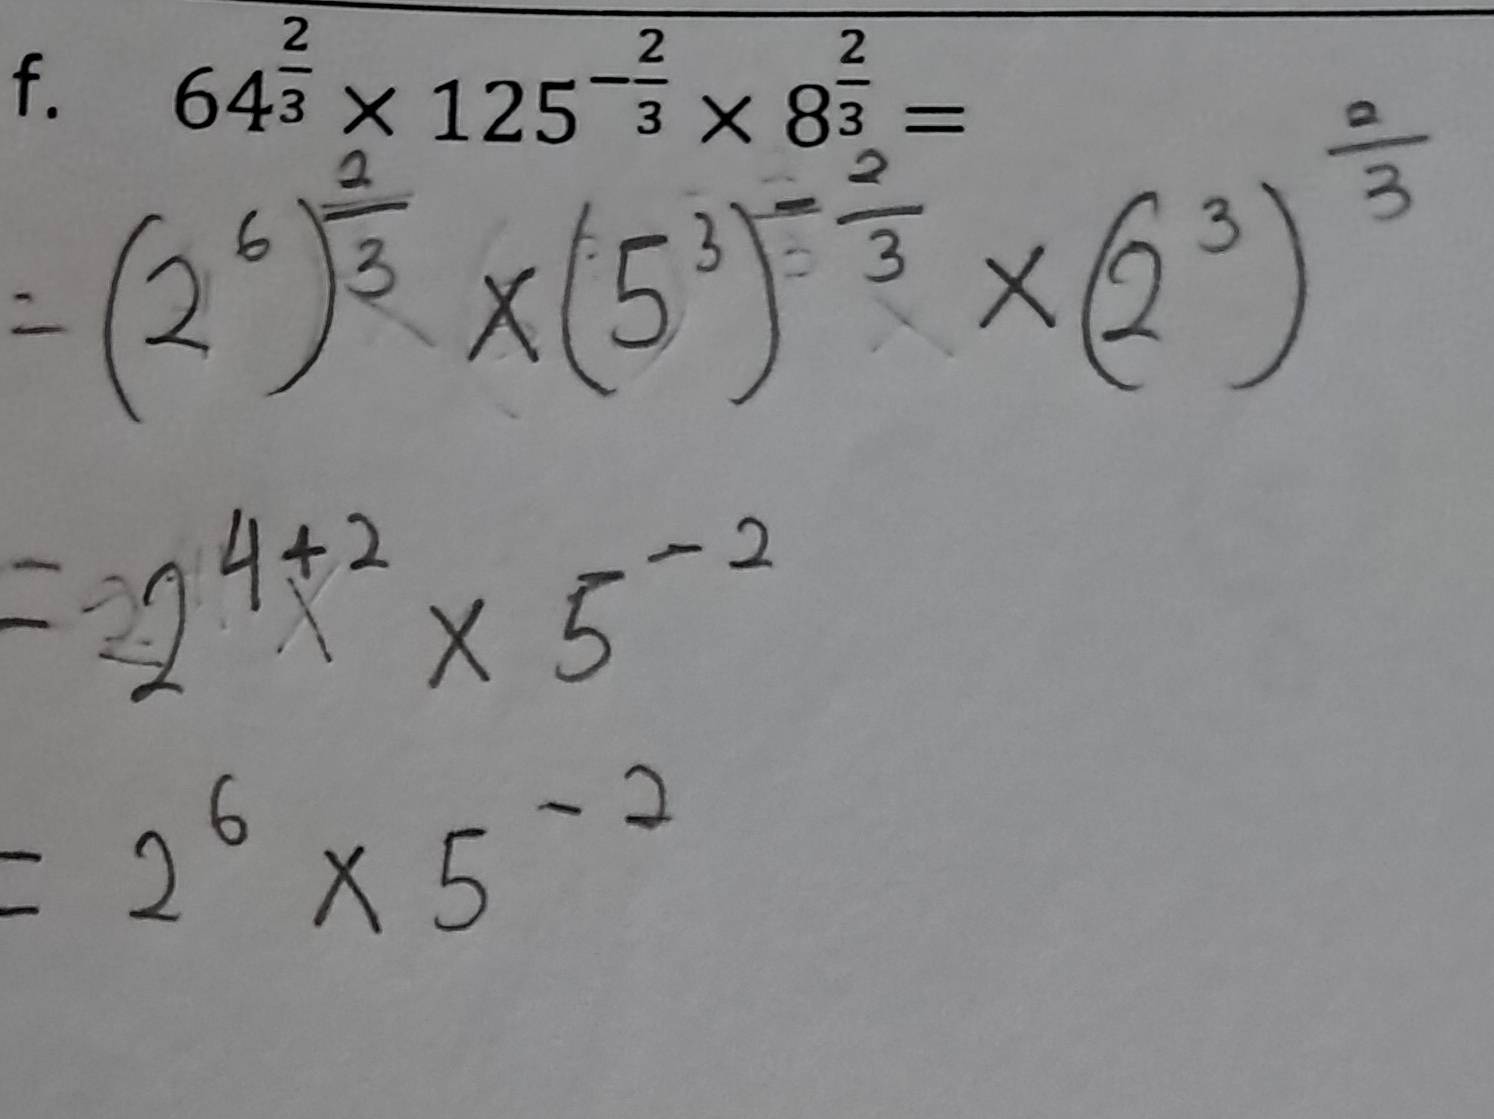 f. 64^{\frac{2}{3}} × 125^{-\frac{2}{3}} × 8^{\frac{2}{3}} =
= (2^6)^{\frac{2}{3}} × (5^3)^{-\frac{2}{3}} × (2^3)^{\frac{2}{3}}
= 2^{4+2} × 5^{-2}
= 2^6 × 5^{-2}